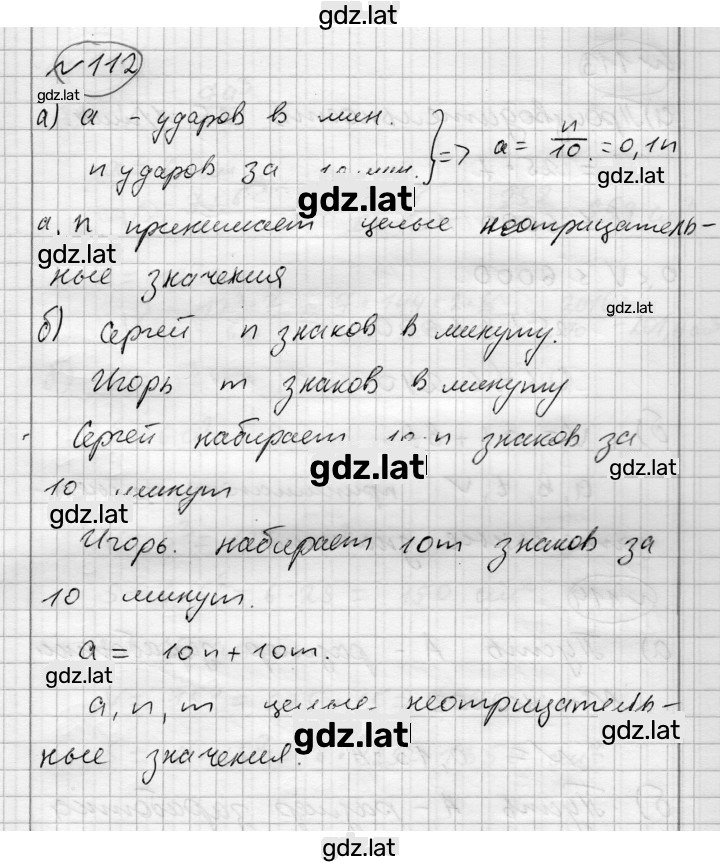 gdz.lat
№112
gdz.lat
а) a - ударов в мин.
n ударов за 10 мин. } => a = n/10 = 0,1n
gdz.lat
gdz.lat
a, n принимает целые неотрицатель-
gdz.lat
ные значения
gdz.lat
б) Сергей n знаков в минуту.
Игорь m знаков в минуту
Сергей набирает 10 n знаков за
gdz.lat
gdz.lat
10 минут
gdz.lat
Игорь. набирает 10m знаков за
10 минут.
a = 10n + 10m.
gdz.lat
a, n, m целые неотрицатель-
gdz.lat
gdz.lat
ные значения.
gdz.lat